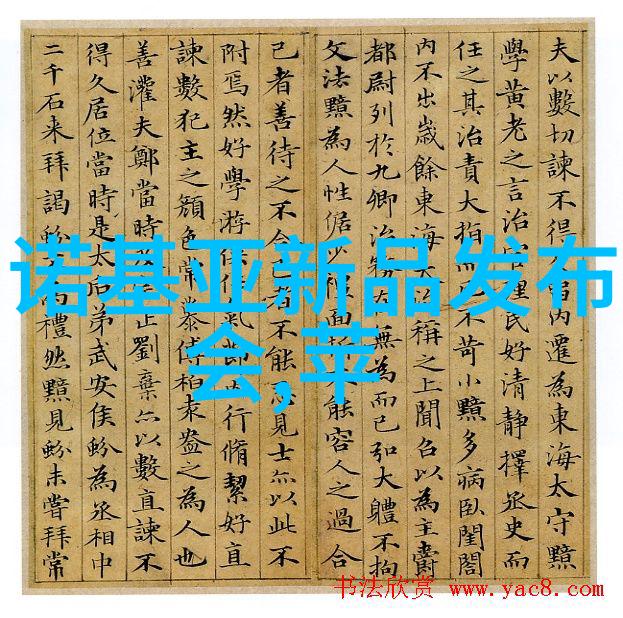 夫以數切諫不得內遷為東海太守黯
學黃老之言治官理民好清静擇丞史而
任之其治責大指而不苛小黯多病卧閨閤
內不出歲餘東海大治稱之上聞召以為主爵
都尉列於九卿治務無為而已弘大體不拘
文法黯為人性倨少禮面折能容人之過合
己者善待之不合己者不能見士亦以此不
附焉然好學游俠任氣節行脩潔好直
諫數犯主之顏色常慕傅柏袁盎之為人也
善灌夫鄭當時正劉棄亦以數直諫不
得久居位當時是太后弟武安侯蚡為丞相中
二千石来拜謁蚡禮然黯見蚡未嘗拜常
诺基亚新品发布
会,苹
书法欣赏 www.yac8.com